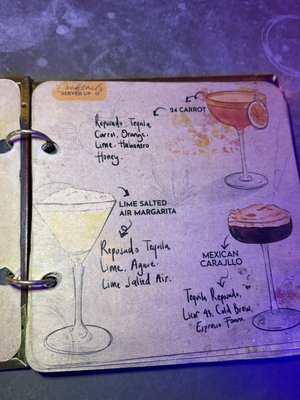 Cocktails
SERVED UP · 11
24 CARROT
Reposado Tequila
Carrot, Orange,
Lime, Habanero
Honey.
LIME SALTED
AIR MARGARITA
Reposado Tequila
Lime, Agave
Lime Salted Air.
MEXICAN
CARAJLLO
Tequila Reposado,
Licor 43, Cold Brew,
Espresso Foam